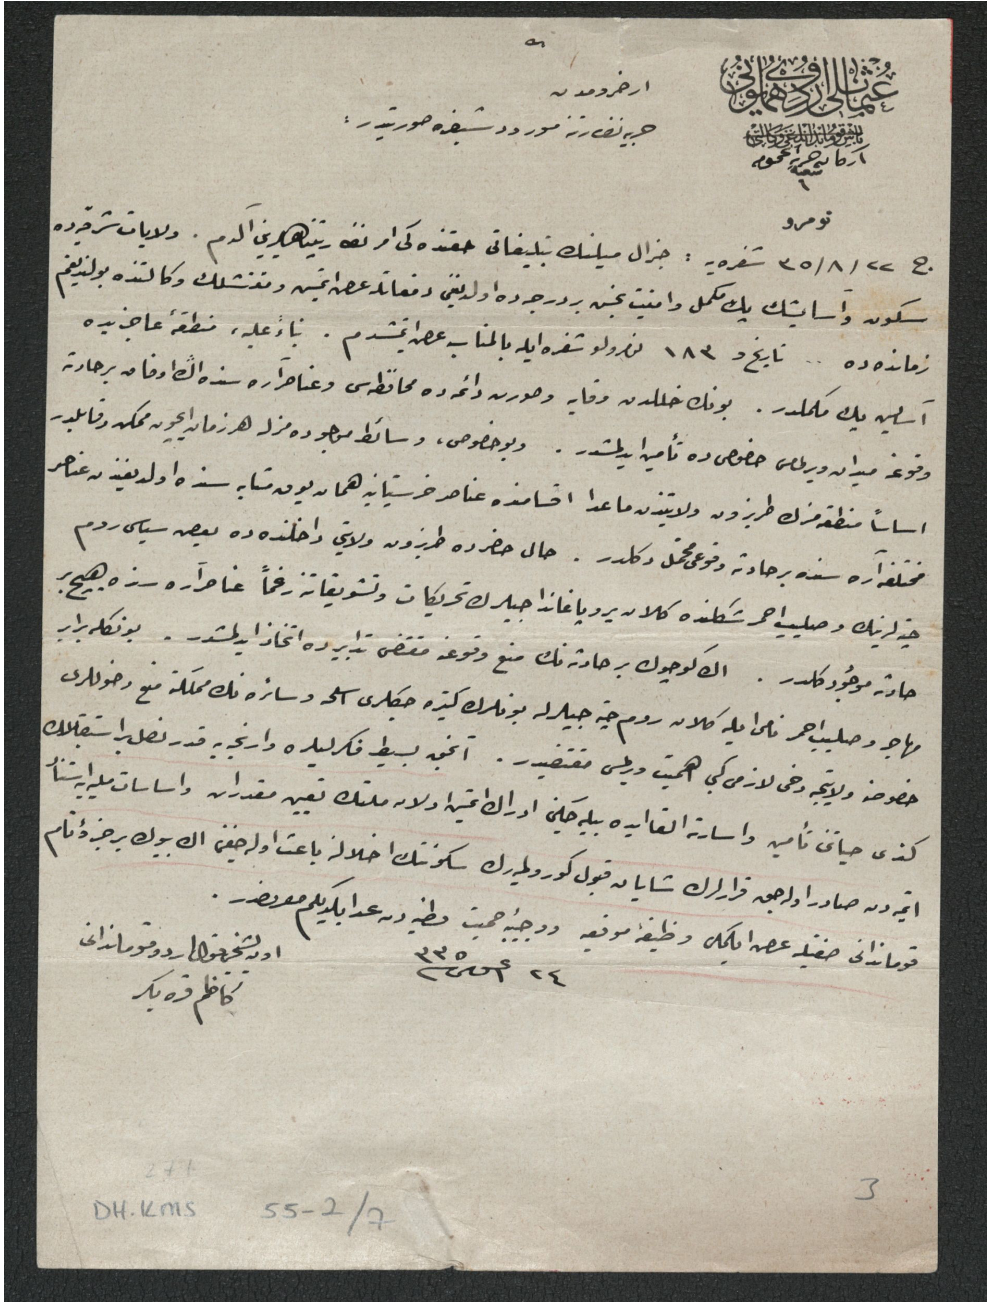 عثمانلی اردوی همایونی
باش قوماندانلغی وکالتی
ارکان حربیه عمومیه
شعبه
١
نومرو
ارضرومدن
حربیه نظارتنه مورود شیفره صورتیدر :
ج ٢٢ / ٨ / ٣٥ شفره یه : جنرال میلنك تبلیغاتی حقنده کی امر نظارتپناهیلرینی آلدم . ولایات شرقیه ده
سکون و آسایشك پك مکمل و امنیت بخش بر درجه ده اولدیغنی دفعاتله عرض ایتمش و مفتشلك وکالتنده بولندیغم
زمانده ده .. تاریخ و ١٨٣ نومرولو شفره ایله بالمناسبه عرض ایتمشدم . بناءً علیه ، منطقۀ عاجزیده
آسایش پك مکملدر . بونك خللدن وقایه وصورت دائمه ده محافظه سی و عناصر آره سنده اك اوفاق بر حادثه
وقوعنه میدان ویرلمامسی خصوصی ده تأمین ایدلمشدر . وبو خصوص ، وسائط موجوده مزله هر زمان ایچون ممکن وقابلدر
اساساً منطقه مزك طربزون ولایتندن ماعدا اقسامنده عناصر خرستیانیه همان یوق مثابه سنده اولدیغندن عناصر
مختلفه آره سنده بر حادثه وقوعی محتمل دکلدر . حال حاضرده طربزون ولایتی داخلنده ده بعض سیاسی روم
چته لرینك و صلیب احمر شکلنده کلان پروپاغانداجیلرك تحریکات و تشویقاتنه رغماً عناصر آره سنده هیچ بر
حادثه موجود دکلدر . اك کوچوك بر حادثه نك منع وقوعنه مقتضی تدابیر ده اتخاذ ایدلمشدر . بونکله برابر
مهاجر و صلیب احمر نامی ایله کلان روم چته جیلرله بونلرك کتیره جکلری اسلحه و سائره نك مملکته منع دخوللری
خصوصنه ولایتجه دخی لازمی کبی اهمیت ویرلمسی مقتضیدر . آنجق بسیط فکرلیلره وارنجیه قدر نصل بر استقبالك
کندی حیاتی تأمین و اسارته القا ایده بیله جکنی ادراك ایتمش اولان ملتك تعیین مقدراتی و اساسات ملیه یه استناد
ایتمه دن صادر اوله جق قرارلرك شایان قبول کورولمیه رك سکونتك اخلالنه باعث اوله جغنی اك بیوك بر جزؤ تام
قوماندانی صفتیله عرض ایلمکی وظیفۀ موقعیه و وجیبۀ حمیت وطنیه دن عد ایلدیکم معروضدر .
٢٤ اغستوس ٣٣٥
اون بشنجی قول اردو قوماندانی
کاظم قره بکر
DH.KMS 55-2/7
3